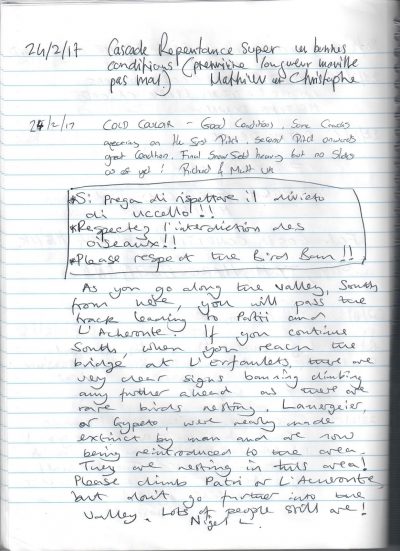 24/2/17 Cascade Repentance Super en bonnes
conditions (première longueur mouille
pas mal.) Mathieu et Christophe
24/2/17 COLD COULOIR - Good Conditions, Some Cracks
appearing on the first Pitch, second Pitch onwards
great Condition, Final Snow Field heavy but no Slides
as of yet! Richard & Matt UK
*Si Prega di rispettare il divieto
di uccello!!!
*Respectez l'interdiction des
oiseaux!!
*Please respect the Bird Ban!!
As you go along the valley, South
from here, you will pass the
track leading to Patri and
L'Acheronte. If you continue
South, when you reach the
bridge at L'Erfaulets, there are
very clear signs banning climbing
any further ahead as there are
rare birds nesting. Lamergeier,
or Gypeto, were nearly made
extinct by man and are now
being reintroduced to the area.
They are nesting in this area!
Please climb Patri or L'Acheronte,
but don't go further into the
valley. Lots of people still are!
Nigel L.